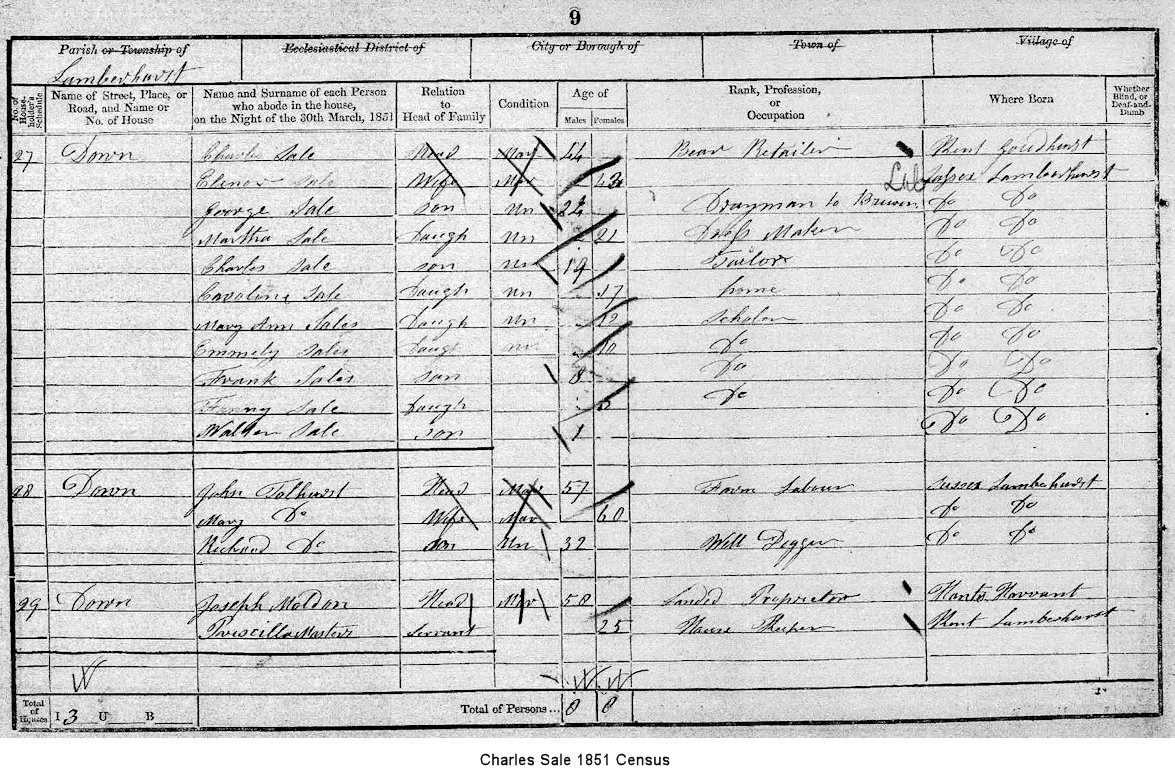 9
Parish or Township of Ecclesiastical District of City or Borough of Town of Village of
Lamberhurst
No. of House-holder's Schedule Name of Street, Place, or Road, and Name or No. of House Name and Surname of each Person who abode in the house, on the Night of the 30th March, 1851 Relation to Head of Family Condition Age of Males Females Rank, Profession, or Occupation Where Born Whether Blind, or Deaf-and-Dumb
27 Down Charles Sale Head Mar 44 Bear Retailer Kent Goudhurst
Elenor Sale Wife Mar 43 Sussex Lamberhurst
George Sale son Un 24 Drayman to Brewer Do Do
Martha Sale Daugh Un 21 Dress Maker Do Do
Charles Sale son Un 19 Tailor Do Do
Caroline Sale Daugh Un 17 home Do Do
Mary Ann Sales Daugh Un 12 Scholar Do Do
Emmely Sales Daugh Un 10 Do Do Do
Frank Sales son 8 Do Do Do
Fanny Sale Daugh Do Do Do
Walter Sale son 1 Do Do
28 Down John Tolhurst Head Mar 57 Farm Labour Sussex Lamberhurst
Mary Do Wife Mar 60 Do Do
Richard Do son Un 32 Well Digger Do Do
29 Down Joseph Moldon Head Mar 58 Landed Proprietor Hants Havvant
Priscilla Masters Servant 25 House Keeper Kent Lamberhurst
Total of Houses I 3 U B Total of Persons... 8 8
Charles Sale 1851 Census